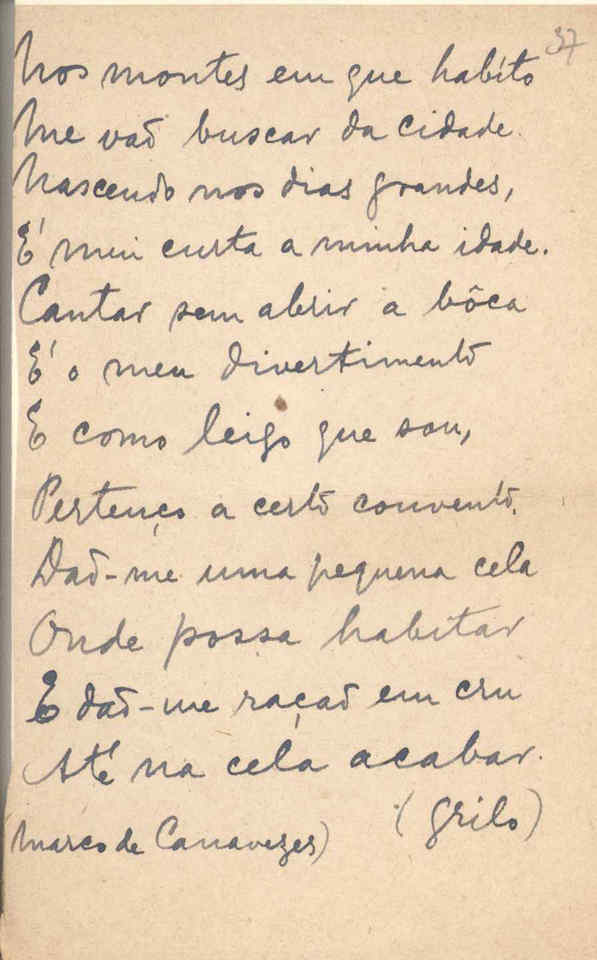 37
Nos montes em que habito
Me vaõ buscar da cidade.
Nascendo nos dias grandes,
É mui curta a minha idade.
Cantar sem abrir a bôca
É o meu divertimento
E como leigo que sou,
Pertenço a certo convento.
Daõ-me uma pequena cela
Onde possa habitar
E daõ-me raçaõ em cru
Até na cela acabar.
(Grilo)
Marco de Canavezes)